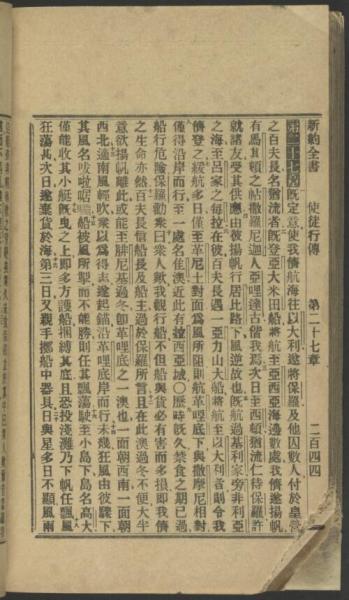 新約全書　使徒行傳　第二十七章　二百四四
第二十七章既定意使我儕航海往以大利遂將保羅及他囚數人付於皇營
之百夫長名猶流者既登亞大米田船將航至亞西亞海邊數處我儕遂揚帆
有馬其頓之帖撒羅尼迦人亞哩達古偕我焉次日至西頓猶流仁待保羅許
就諸友受其供應由彼揚帆行居比路下風逆故也既航過基利家旁非利亞
之海至呂家之每拉在彼百夫長遇一亞力山大船將航至以大利者則令我
儕登之緩航多日僅至革尼土對面爲風所阻則航革哩底下與撒摩尼相對
僅得沿岸而行至一處名佳澳近此有拉西亞城○歷時既久禁食之期已過
船行危險保羅勸衆曰衆人歟我觀行船不但船與貨必有害而多損即我儕
之生命亦然百夫長信船長及船主過於保羅所言且在此澳過冬不便大半
意欲揚帆離此或能至腓尼基過冬卽革哩底之一澳也一面朝西南一面朝
西北適南風輕吹衆以爲得志遂起錨沿革哩底岸而行未幾狂風由彼驟下
其風名 船被風所掣而不能勝則任其飄蕩駛至小島下島名高大
僅能收其小艇既曳之上即多方護船捆縛其底且恐投淺灘乃下帆任飄風
狂蕩甚次日遂棄貨於海第三日又親手擲船中器具日與星多日不顯風雨